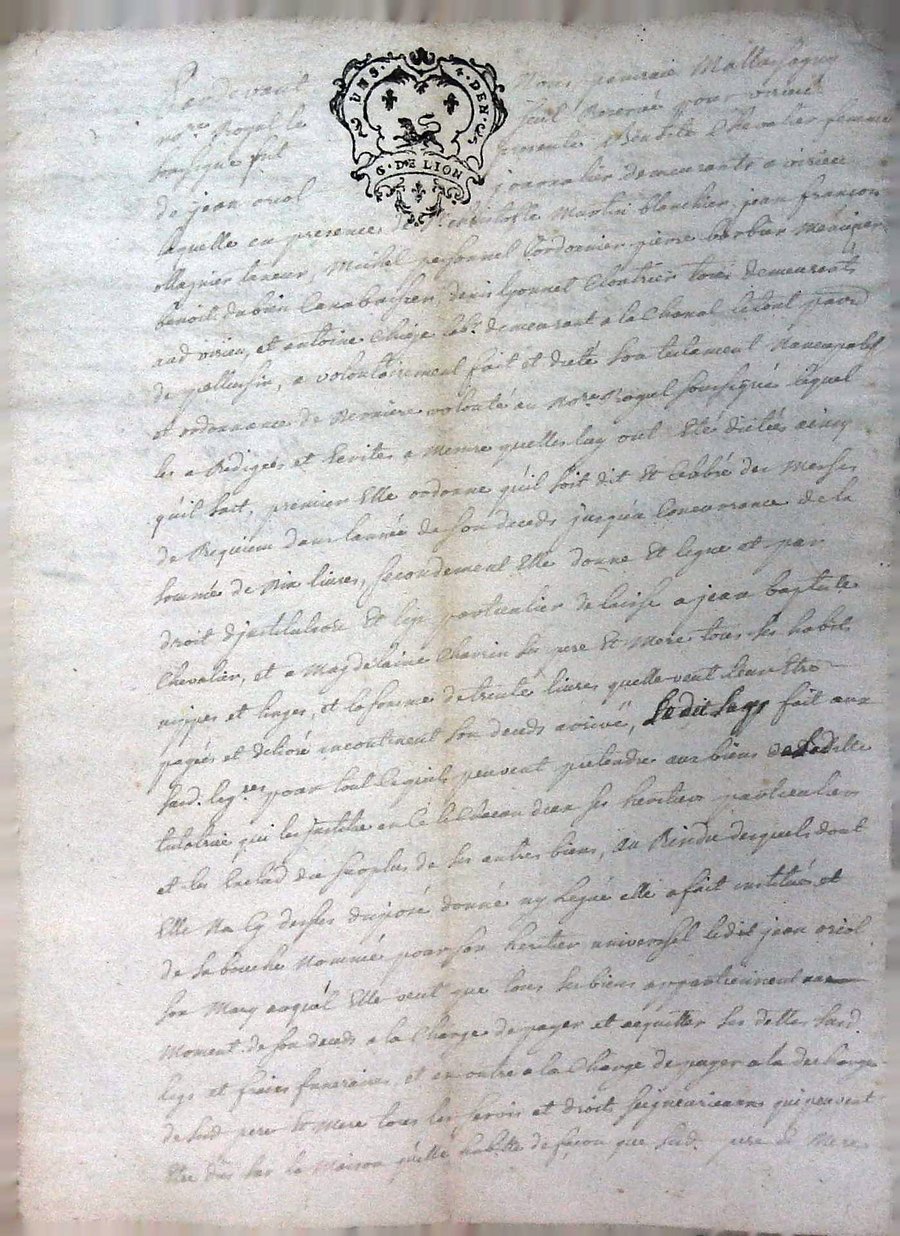 Pardevant Nous
no.re Royal
soussigné fut presente Chevalier femme
de jean oriol journalier demeurants a virieu
laquelle en presence de Martin blanchier, jean francois
ollagnier Michel personnel Cordonnier pierre barbier
benoit dubien denis lyonnet tous demeurants
aud virieu, et antoine demeurant a la Chanal
de pellussin, a volontairement fait et dicté son testament Nuncupatif
et ordonnance de Derniere volonté au No.re Royal soussigné lequel
les a Redigés et Ecrites a mesure quelles luy ont Eté dictées ainsy
qu'il suit, premier Elle ordonne qu'il soit dit et Celebré des Messes
de Requiem dans l'année de son deceds jusqu'a Concurrance de la
somme de livres, secondement Elle donne et legue et par
droit d'institution et particulier delaisse a jean baptiste
Chevalier, et a Magdelaine ses pere et Mere tous ses habits
nippes et linges, et la somme de trente livres quelle veut leur etre
payés et delivré incontinent son deceds arrivé, Ledit legs fait aux
susd. leg.res pour tout ce qu'ils peuvent pretendre aux biens de Ladite
testatrice qui les institue en ce ses heritiers particuliers
et les exclud du surplus de ses autres biens, au Residu desquels dont
Elle Na Cy dessus disposé donné ny legué elle a fait institué et
de sa bouche Nommé pour son heritier universel ledit jean oriol
son Mary auquel Elle veut que tous ses biens appartiennent au
Moment de son deceds a la Charge de payer et acquitter ses dettes susd.
legs et fraix funeraires, et en outre a la Charge de payer a la decharge
de sesd pere et Mere tous les servis et droit seigneuriaux qui peuvent
Etre dus sur la Maison qu'elle habitte de façon que sesd. pere et Mere
UNS. 4. DEN.
G. DE LION